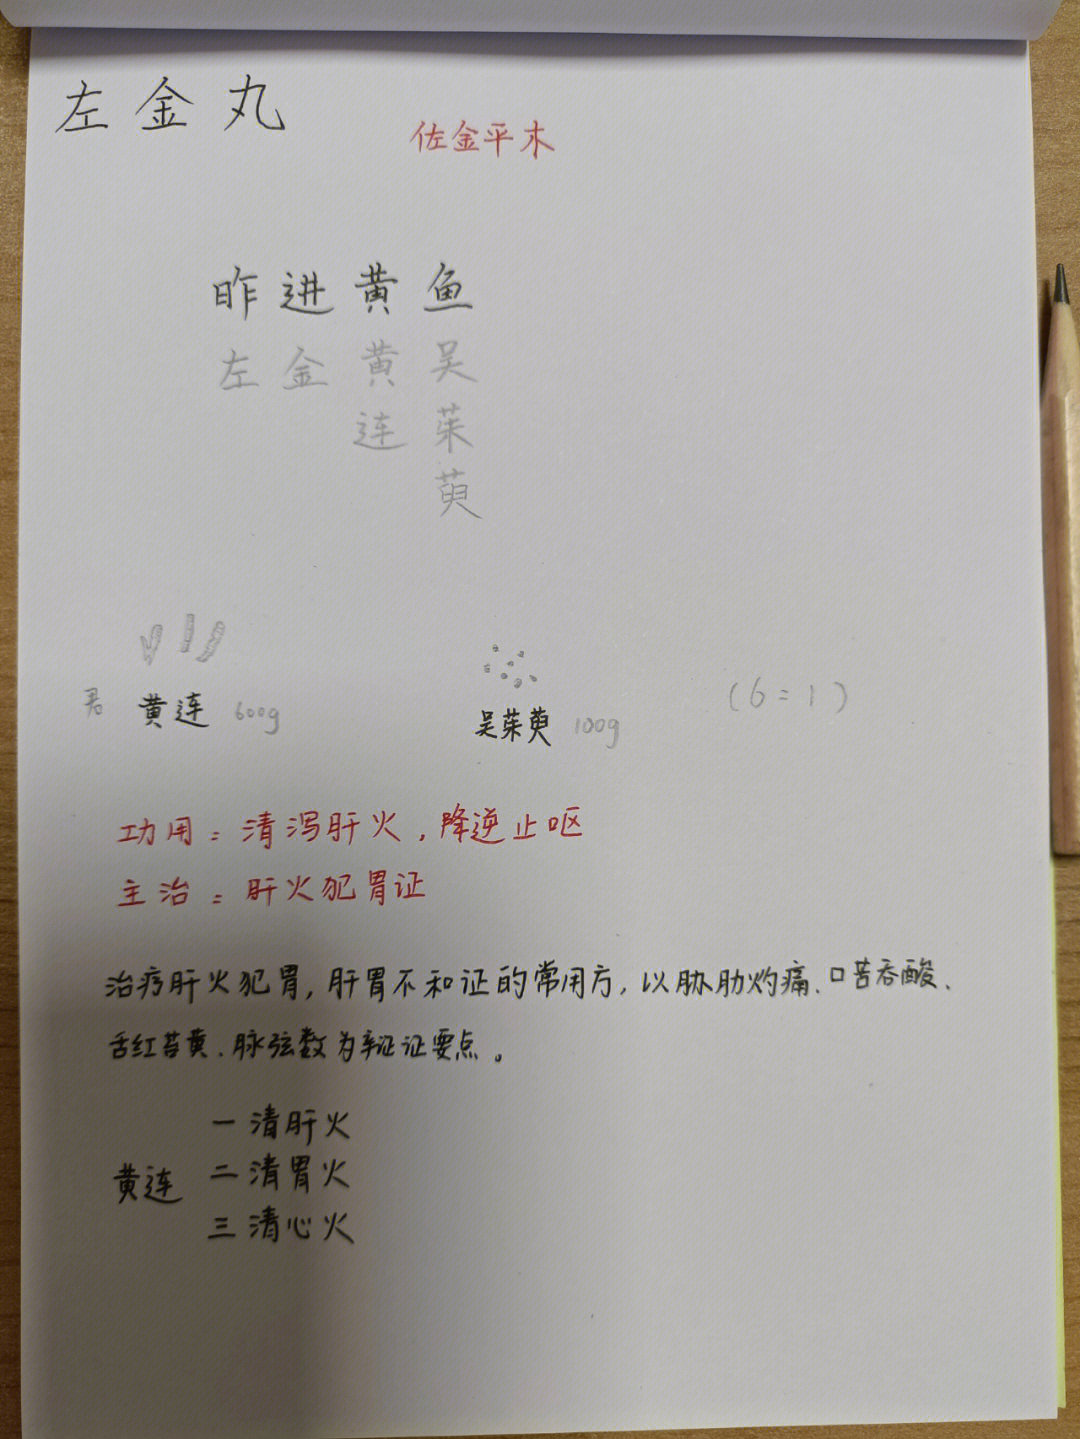 左金丸
佐金平木
昨进黄鱼
左金黄吴
连茱
萸
君 黄连 600g 吴茱萸 100g (6=1)
功用:清泻肝火,降逆止呕
主治:肝火犯胃证
治疗肝火犯胃,肝胃不和证的常用方,以胁肋灼痛、口苦吞酸、
舌红苔黄、脉弦数为辛证证要点。
一清肝火
黄连 二清胃火
三清心火